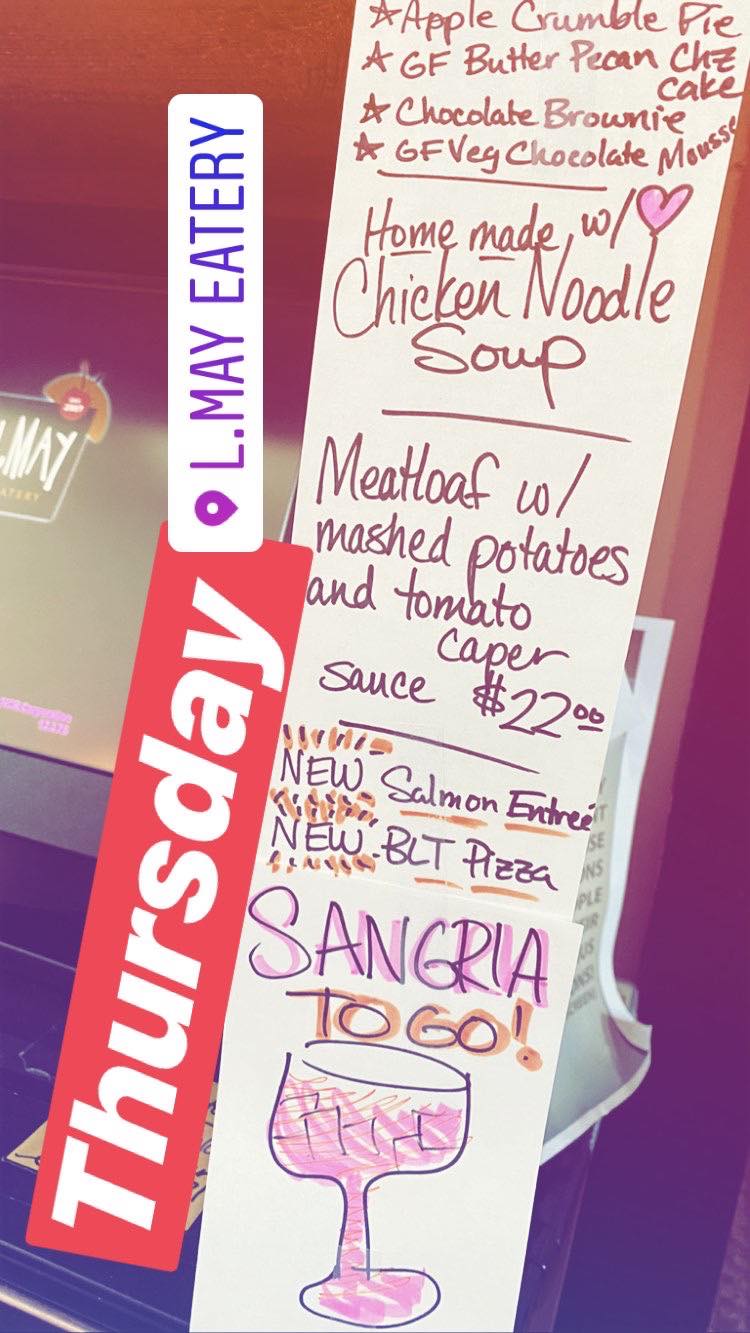 ☆Apple Crumble Pie
☆ GF Butter Pecan Chz
cake
☆ Chocolate Brownie
☆ GF Veg Chocolate Mousse
Home made w/ ♡
Chicken Noodle
Soup
Meatloaf w/
mashed potatoes
and tomato
caper
sauce $22⁰⁰
NEW Salmon Entreé
NEW BLT Pizza
SANGRIA
TO GO!
L.MAY EATERY
Thursday
L.MAY
EATERY